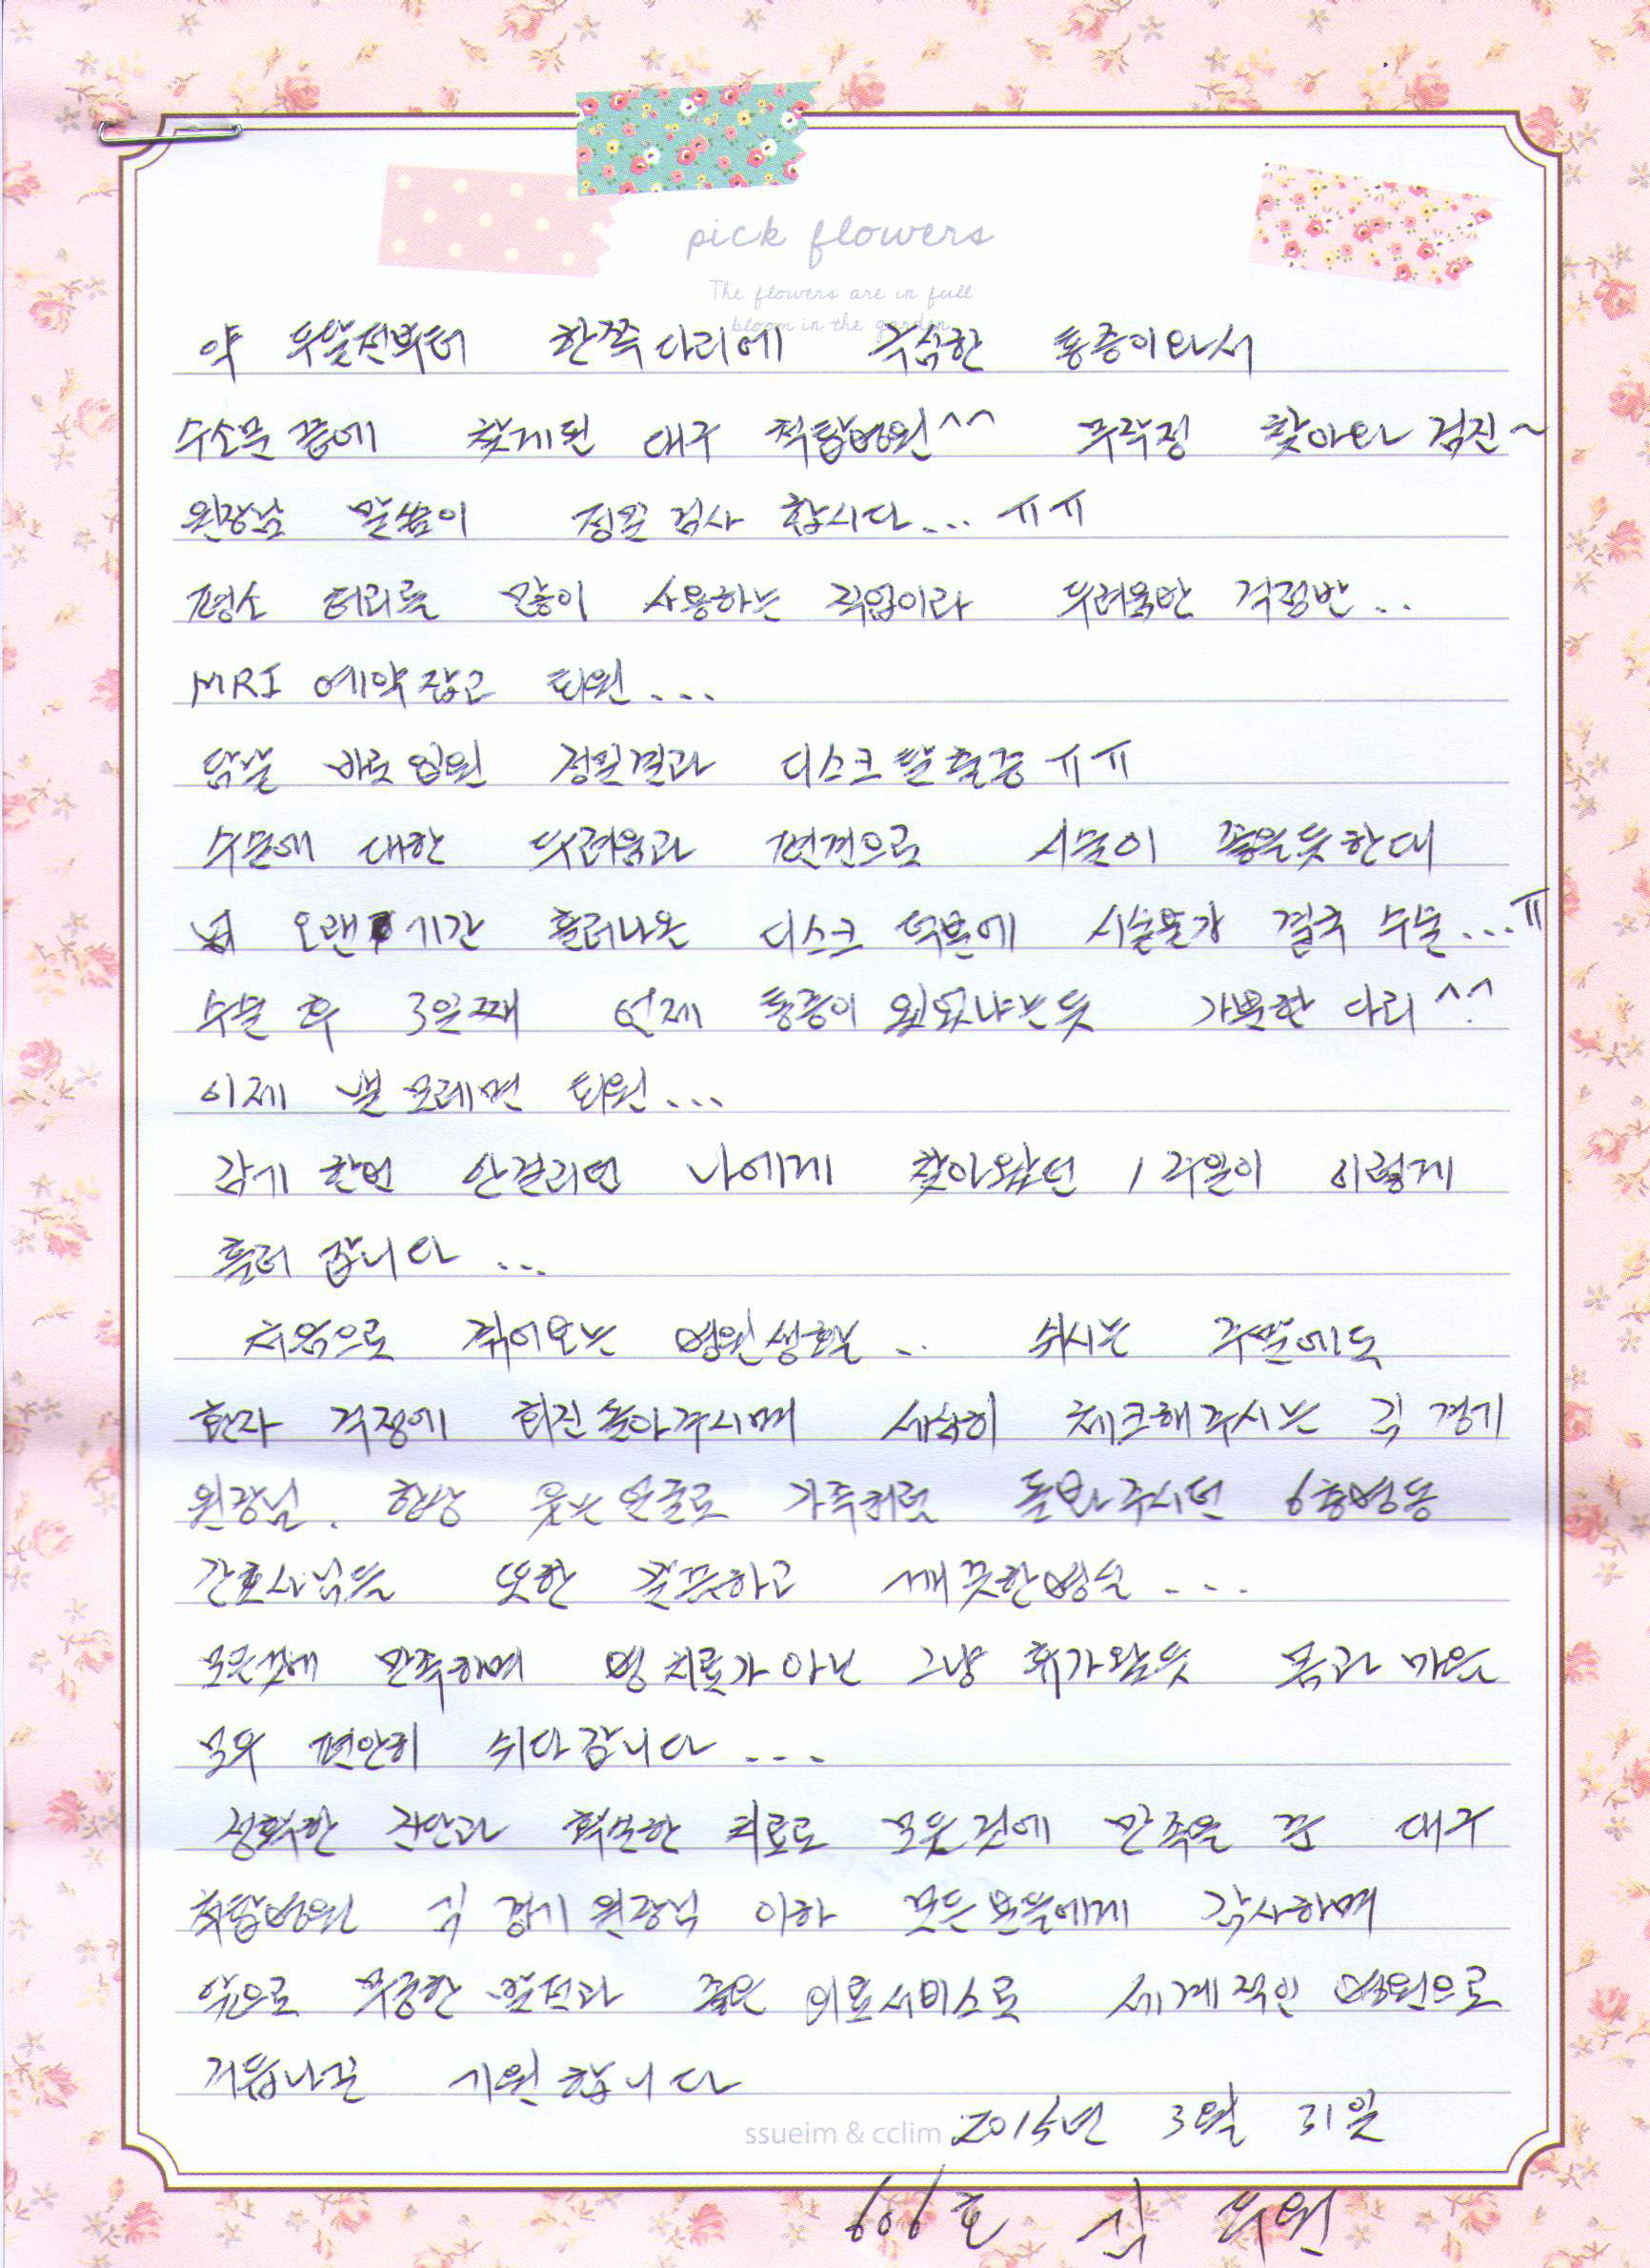 pick flowers
The flowers are in full
bloom in the garden
약 두달전부터 한쪽다리에 극심한 통증이와서
수소문 끝에 찾게된 대구 척탑병원^^ 무작정 찾아와 검진~
원장님 말씀이 정밀검사 합시다... ㅠㅠ
평소 허리를 많이 사용하는 직업이라 두려움반 걱정반..
MRI 예약잡고 퇴원...
담날 바로 입원 정밀결과 디스크탈출증 ㅠㅠ
수술에 대한 두려움과 편견으로 시술이 좋을듯한대
넘 오랜 기간 흘러나온 디스크 덕분에 시술불가 결국 수술...ㅠ
수술 후 3일째 언제 통증이 있었냐는듯 가뿐한 다리^^
이제 낼모레면 퇴원...
감기 한번 안걸리던 나에게 찾아왔던 1주일이 이렇게
흘러 갑니다 ...
처음으로 겪어보는 병원생활 .. 쉬시는 주말에도
환자 걱정에 회진돌아주시며 세심히 체크해주시는 김경기
원장님. 항상 웃는얼굴로 가족처럼 돌봐주시던 6층병동
간호사님들 또한 깔끔하고 깨끗한병실 ...
모든것에 만족하며 병치료가 아닌 그냥 휴가왔듯 몸과 마음
모두 편안히 쉬다갑니다 ...
정확한 진단과 확실한 치료로 모든것에 만족을 준 대구
척탑병원 김경기원장님 이하 모든분들에게 감사하며
앞으로 무궁한 발전과 좋은 의료서비스로 세계적인 병원으로
거듭나길 기원합니다
ssueim & cclim 2015년 3월 31일
606호 김